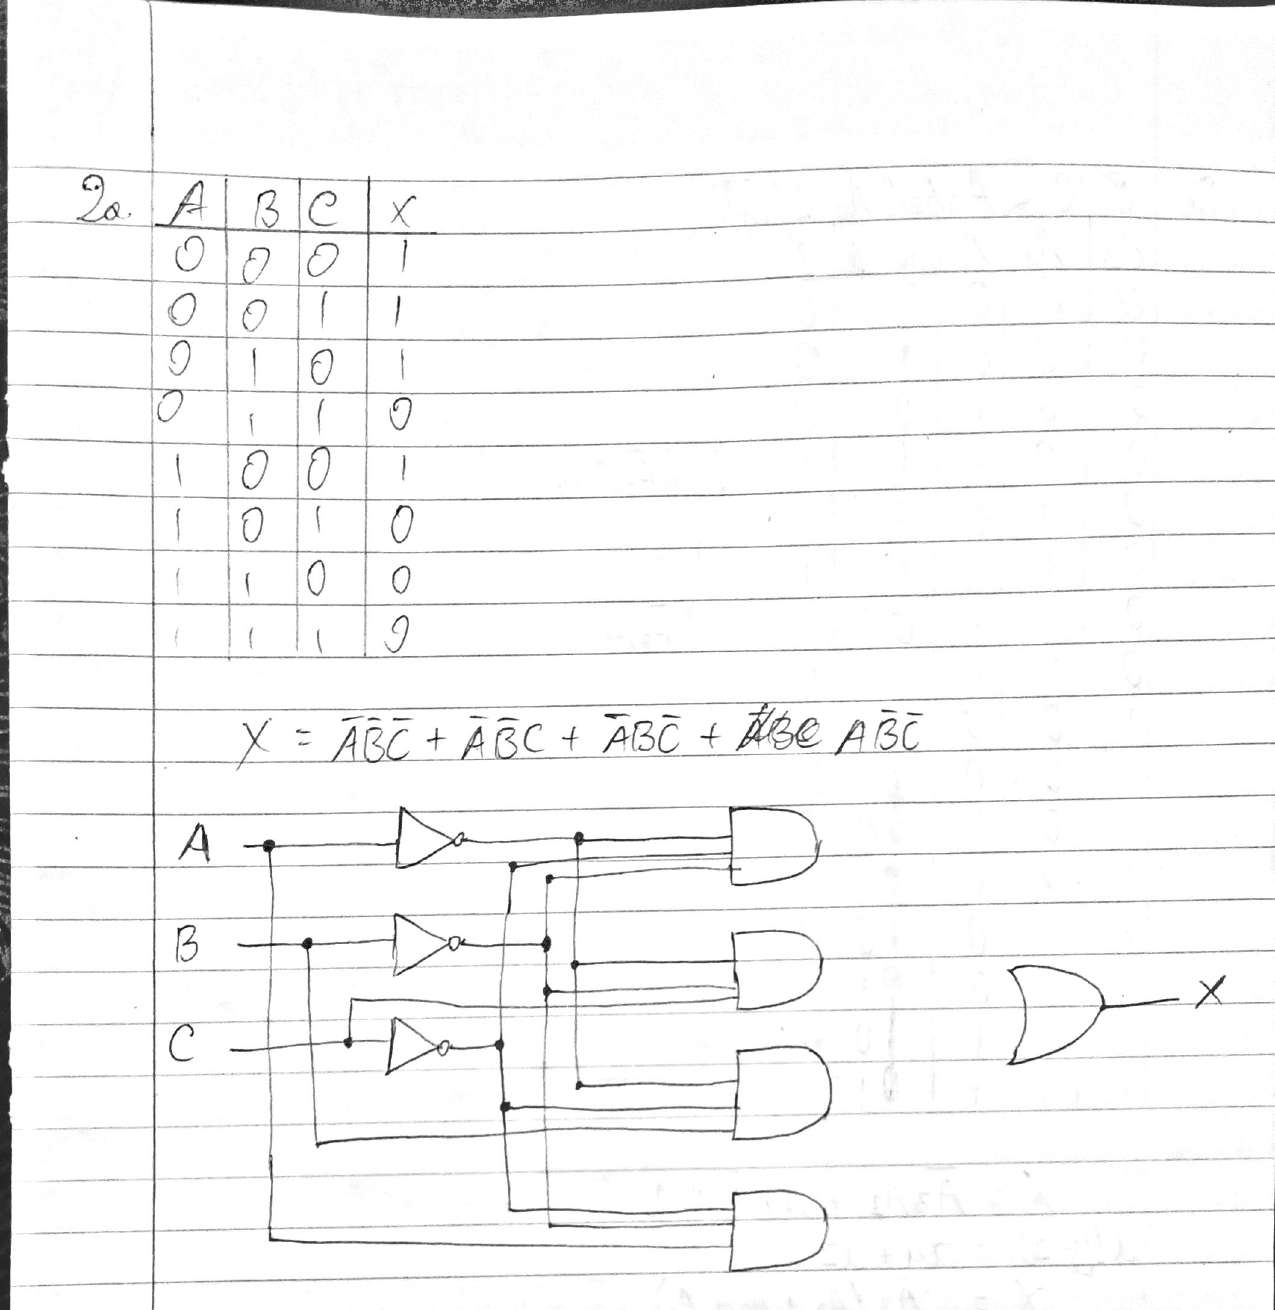 2a. A B C X
0 0 0 1
0 0 1 1
0 1 0 1
0 1 1 0
1 0 0 1
1 0 1 0
1 1 0 0
1 1 1 0
X = A̅B̅C̅ + A̅B̅C + A̅BC̅ + AB̅C̅
A
B
X
C